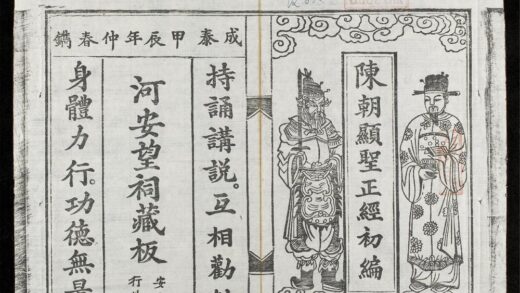 陳朝顯聖正經初編
成泰甲辰年仲春鐫
持誦講説。互相勸
河安望祠藏板
安
行
身體力行。功德無